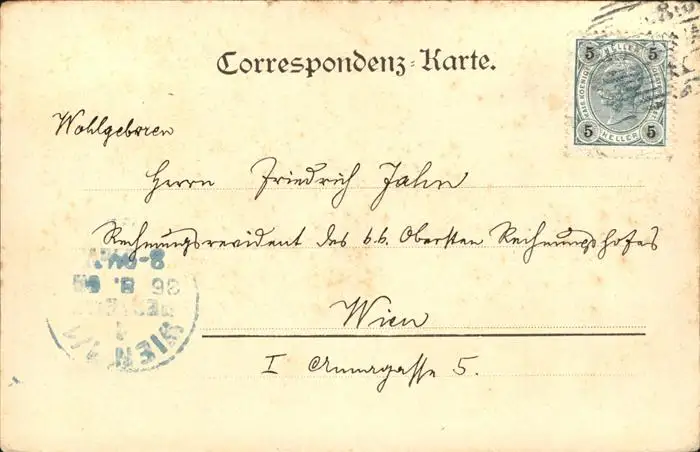 Correspondenz-Karte.
5 HELLER 5
5 HELLER 5
Wohlgeboren
Herrn Friedrich Jahn
Rechnungsrevident des k.k. Obersten Rechnungshofes
Wien
I Annagasse 5.
WIEN 1/1